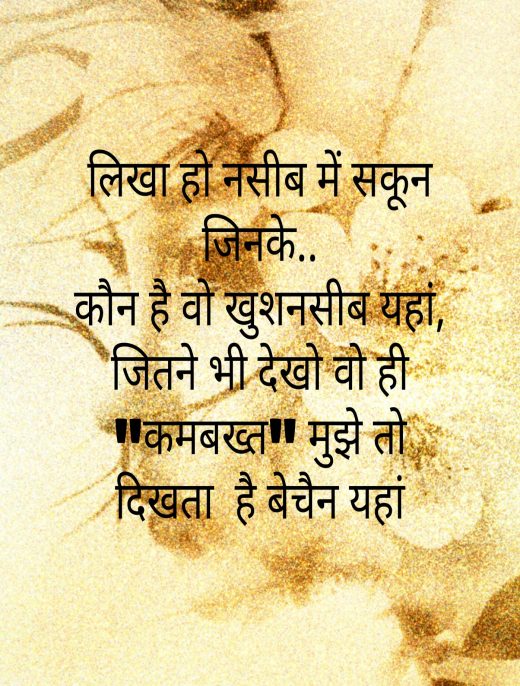 लिखा हो नसीब में सकून
जिनके..
कौन है वो खुशनसीब यहां,
जितने भी देखो वो ही
"कमबख्त" मुझे तो
दिखता  है बेचैन यहां